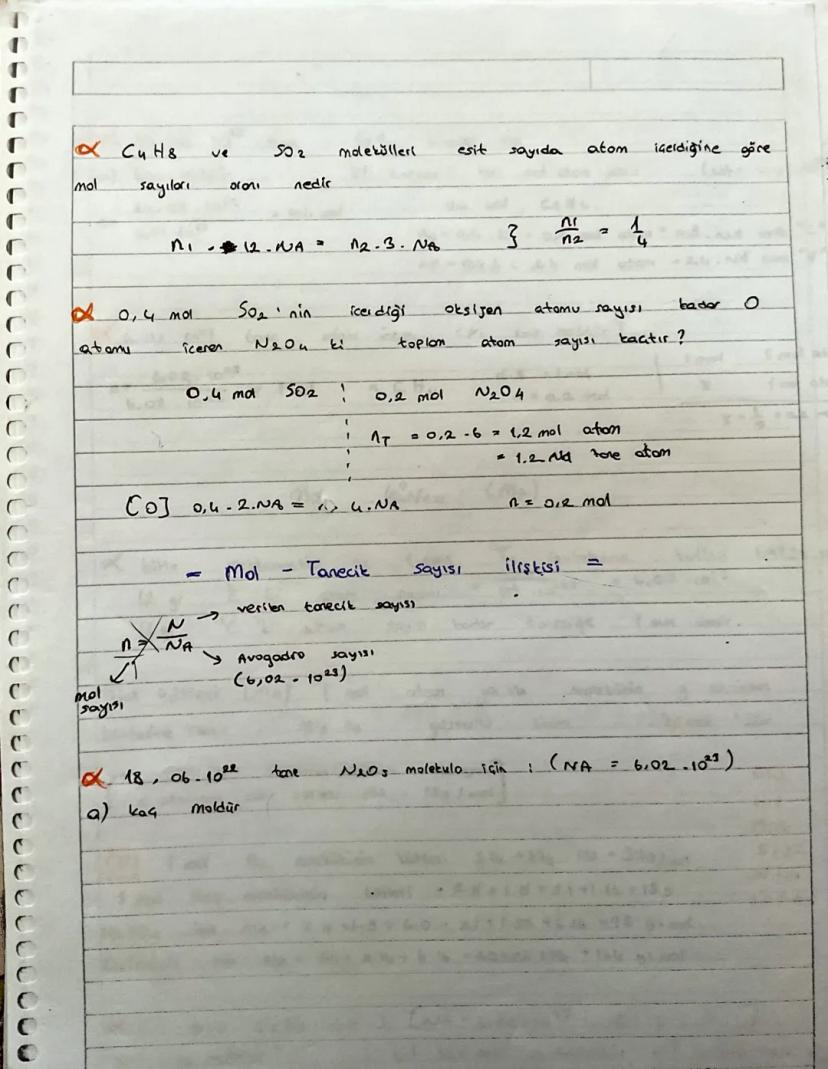 α C4H8 ve SO2 molekülleri eşit sayıda atom içerdiğine göre
mol sayıları oranı nedir
n1 . 12 . NA = n2 . 3 . NA } n1/n2 = 1/4
α 0,4 mol SO2'nin içerdiği oksijen atomu sayısı kadar O
atomu içeren N2O4 ki toplam atom sayısı kaçtır?
0,4 mol SO2 0,2 mol N2O4
nT = 0,2 . 6 = 1,2 mol atom
= 1.2 NA tane atom
[O] 0,4 . 2 . NA = n . 4 . NA n = 0,2 mol
= Mol - Tanecik sayısı ilişkisi =
n = N/NA → verilen tanecik sayısı
→ Avogadro sayısı
(6,02 . 10²³)
mol
sayısı
α 18,06 . 10²² tane N2O3 molekülü için : (NA = 6,02 . 10²³)
a) kaç moldür